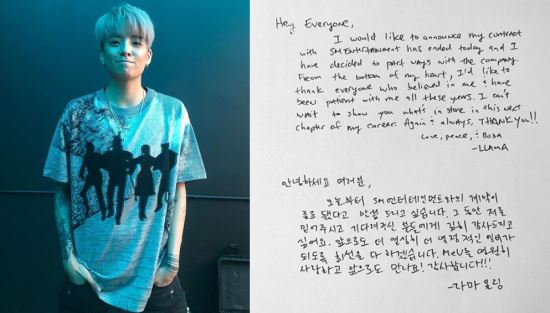 Hey Everyone,
I would like to announce my contract
with SM ENTERTAINMENT has ended today and I
have decided to part ways with the company.
From the bottom of my heart, I'd like to
thank everyone who believed in me & have
been patient with me all these years. I can't
wait to show you what's in store in this next
chapter of my career. Again & always, THANK YOU!!
Love, peace, & Boba
-LLAMA
안녕하세요 여러분,
오늘부터 SM엔터테인먼트와의 계약이
종료 됐다고 말씀 드리고 싶습니다. 그 동안 저를
믿어주시고 기다려주신 분들에게 깊이 감사드리고
싶어요. 앞으로도 더 열심히 더 열정적인 엠버가
되도록 최선을 다 하겠습니다. MeU를 영원히
사랑하고 앞으로도 만나요! 감사합니다!!!
-라마 올림